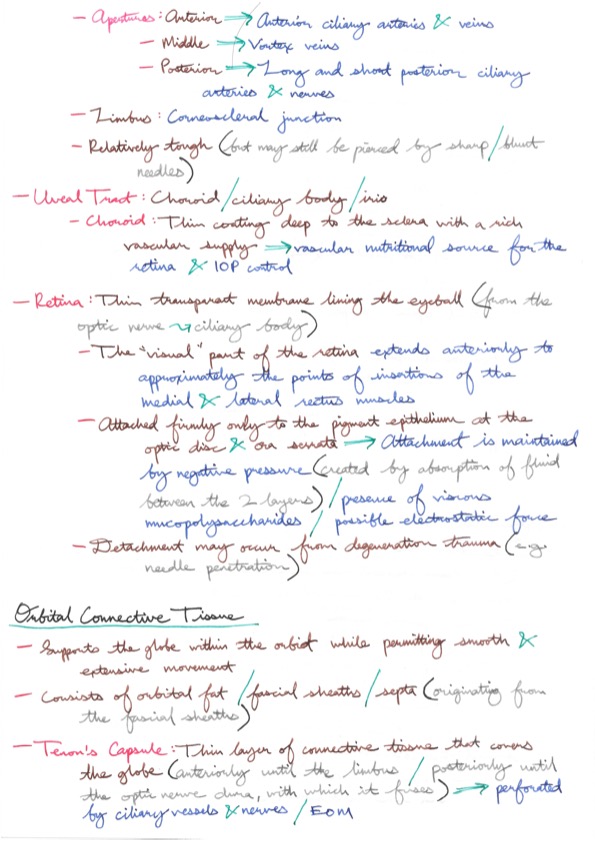 - Apertures: Anterior → Anterior ciliary arteries & veins
- Middle → Vortex veins
- Posterior → Long and short posterior ciliary
arteries & nerves
- Limbus: Corneoscleral junction
- Relatively tough (but may still be pierced by sharp/blunt
needles)
- Uveal Tract: Choroid/ciliary body/iris
- Choroid: Thin coating deep to the sclera with a rich
vascular supply → vascular nutritional source for the
retina & IOP control
- Retina: Thin transparent membrane lining the eyeball (from the
optic nerve → ciliary body)
- The "visual" part of the retina extends anteriorly to
approximately the points of insertions of the
medial & lateral rectus muscles
- Attached firmly only to the pigment epithelium at the
optic disc & ora serrata → Attachment is maintained
by negative pressure (created by absorption of fluid
between the 2 layers) / presence of viscous
mucopolysaccharides / possible electrostatic force
- Detachment may occur from degeneration trauma (e.g.
needle penetration)
Orbital Connective Tissue
- Supports the globe within the orbit while permitting smooth &
extensive movement
- Consists of orbital fat / fascial sheaths / septa (originating from
the fascial sheaths)
- Tenon's Capsule: Thin layer of connective tissue that covers
the globe (anteriorly until the limbus / posteriorly until
the optic nerve dura, with which it fuses) → perforated
by ciliary vessels & nerves / EOM